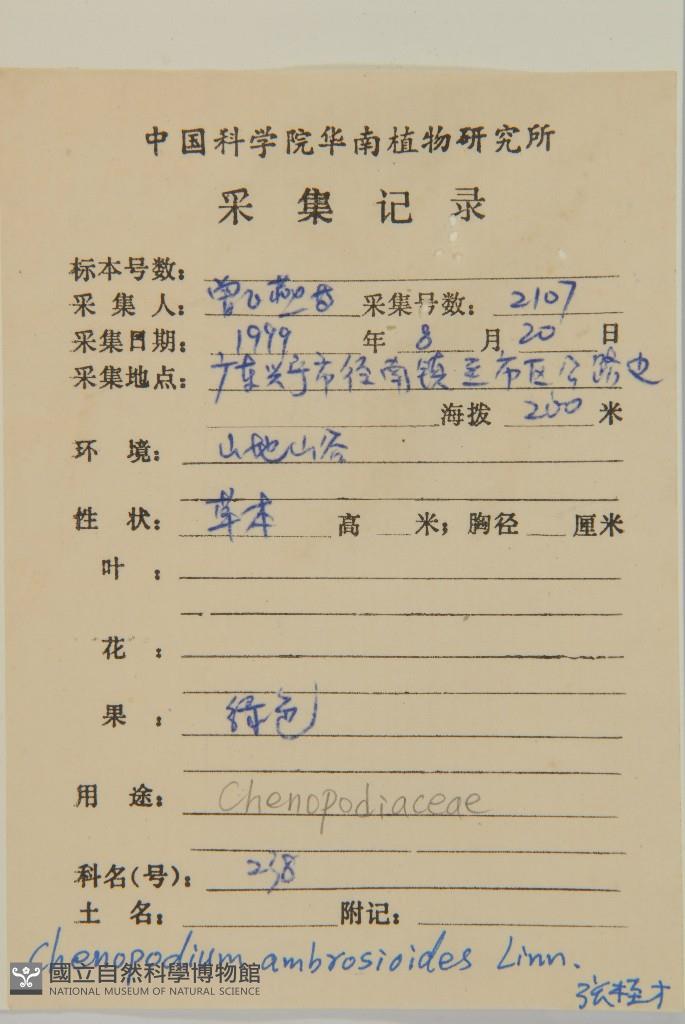 中国科学院华南植物研究所
采集记录
标本号数:
采集人: 曾飞燕 采集号数: 2107
采集日期: 1999 年 8 月 20 日
采集地点: 广东兴宁市径南镇至市区公路边
海拨 200 米
环境: 山地山谷
性状: 草本 高 米; 胸径 厘米
叶:
花:
果: 绿色
用途: Chenopodiaceae
科名(号): 238
土名: 附记:
Chenopodium ambrosioides Linn.
國立自然科學博物館
NATIONAL MUSEUM OF NATURAL SCIENCE
张桂才